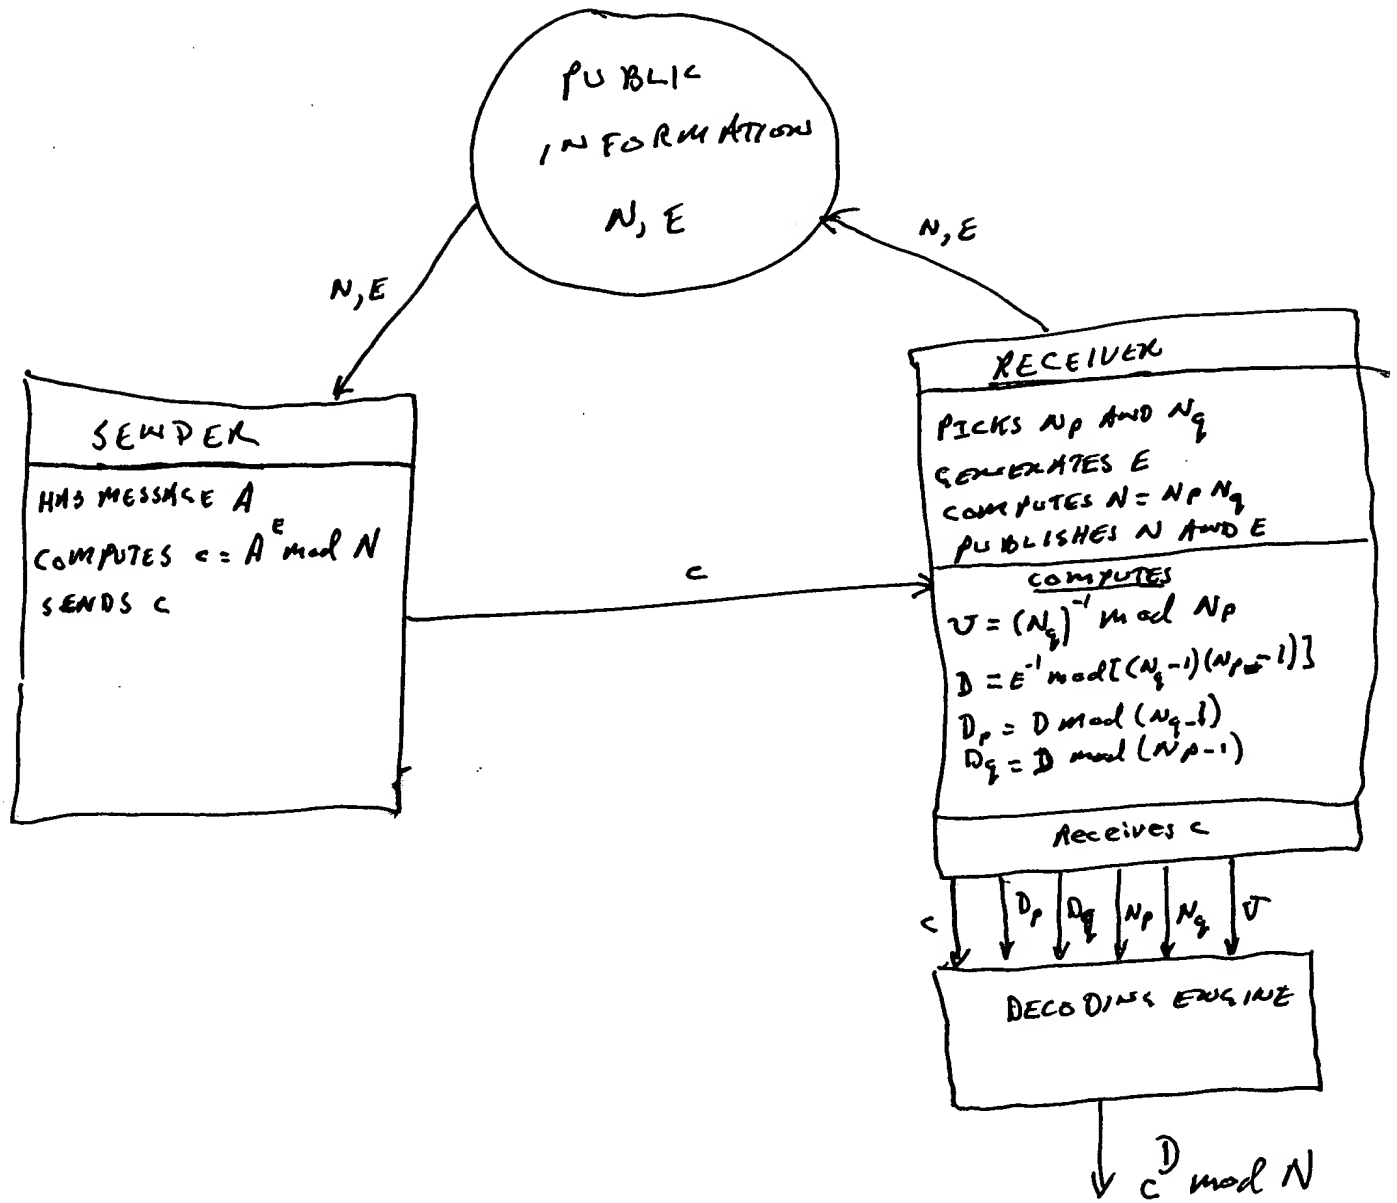 PUBLIC
INFORMATION
N, E
N, E
N, E
SENDER
HAS MESSAGE A
COMPUTES c = A^E mod N
SENDS C
C
RECEIVER
PICKS Np AND Nq
GENERATES E
COMPUTES N = Np Nq
PUBLISHES N AND E
COMPUTES
U = (Nq)^-1 mod Np
D = E^-1 mod [(Nq-1)(Np-1)]
Dp = D mod (Nq-1)
Dq = D mod (Np-1)
Receives c
C Dp Dq Np Nq U
DECODING ENGINE
c^D mod N